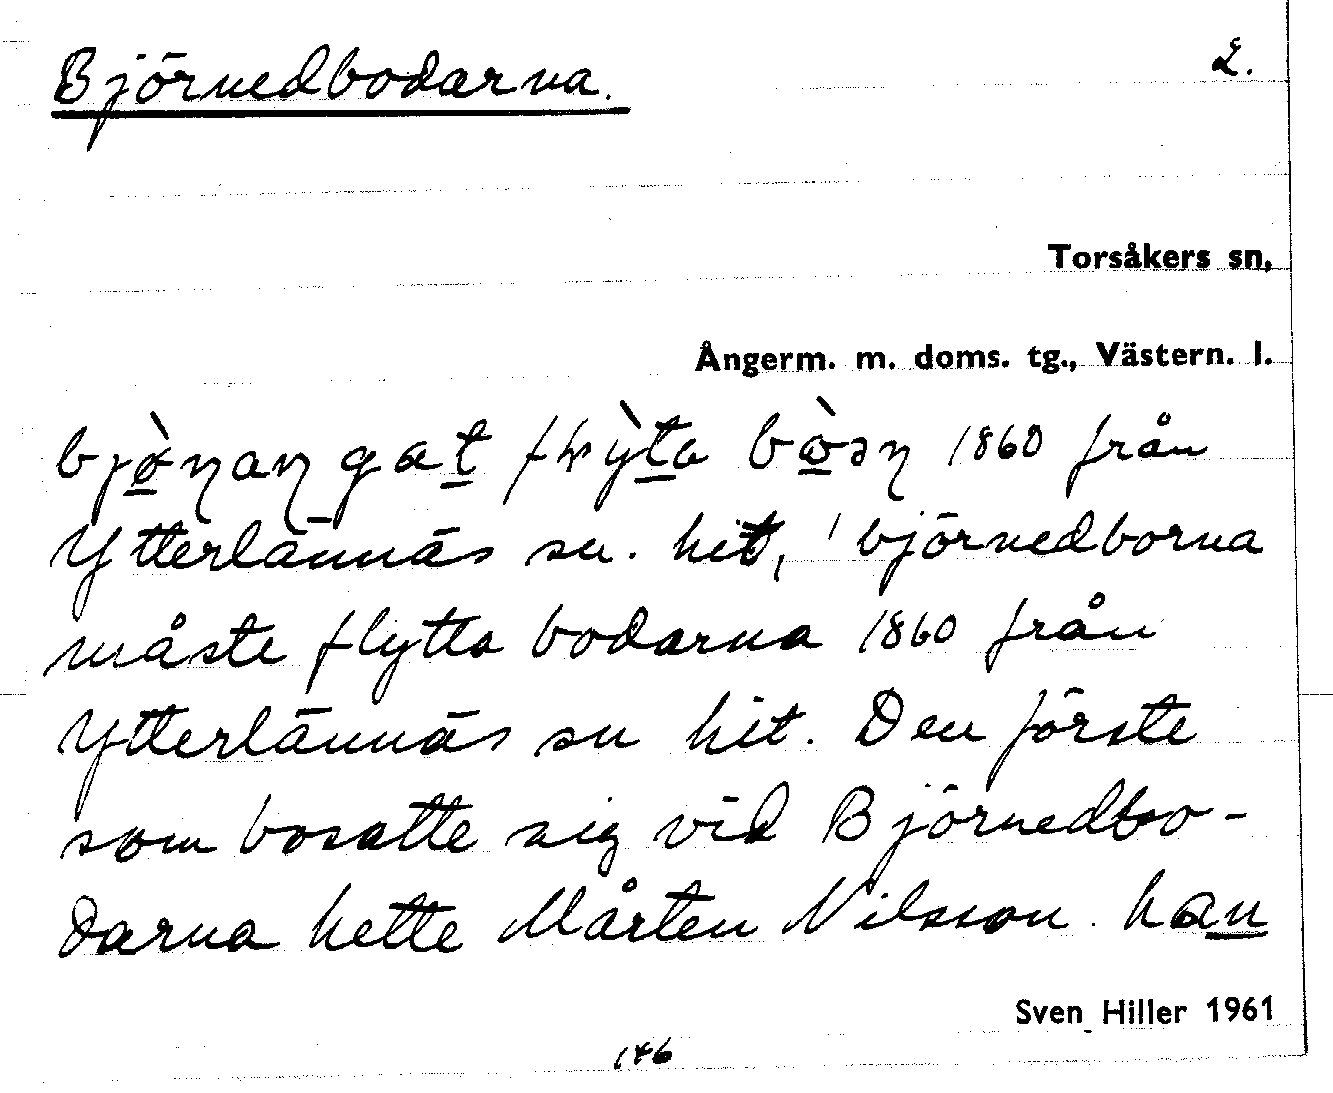 Björnedbodarna. 2.
Torsåkers sn,
Ångerm. m. doms. tg., Västern. l.
1860 från
Ytterlännäs sn. hit, 'björnedborna
måste flytta bodarna 1860 från
Ytterlännäs sn hit. Den förste
som bosatte sig vid Björnedbo-
darna hette Mårten Nilsson. han
Sven Hiller 1961
146